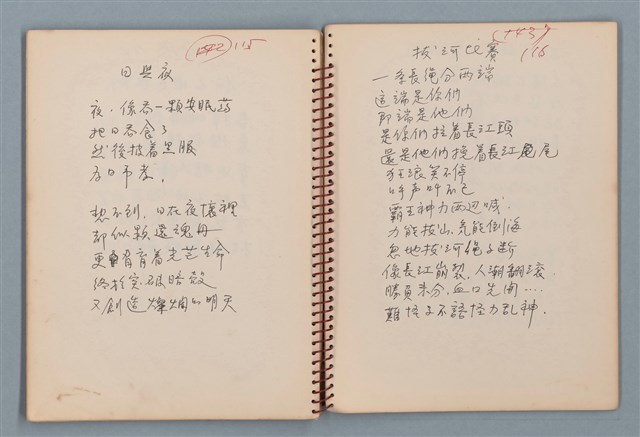 115
日與夜
夜，像吞一顆安眠药
把日吞食了
然後披着黑服
為日弔孝。
想不到，日在夜懷裡
却似顆還魂丹
更孕育着光芒生命
終於突破暗殼
又創造燦爛的明天
116
拔河比賽
一条長绳分两端
這端是你們
那端是他們
是你們拉着長江頭
還是他們挽着長江尾
狂浪笑不停
呼声叫不已
霸王神力两边喊
力能拔山，竟能倒海
忽地拔河绳子断
像長江崩裂，人潮翻滚
勝負未分，血口先開....
難怪子不語怪力乱神．